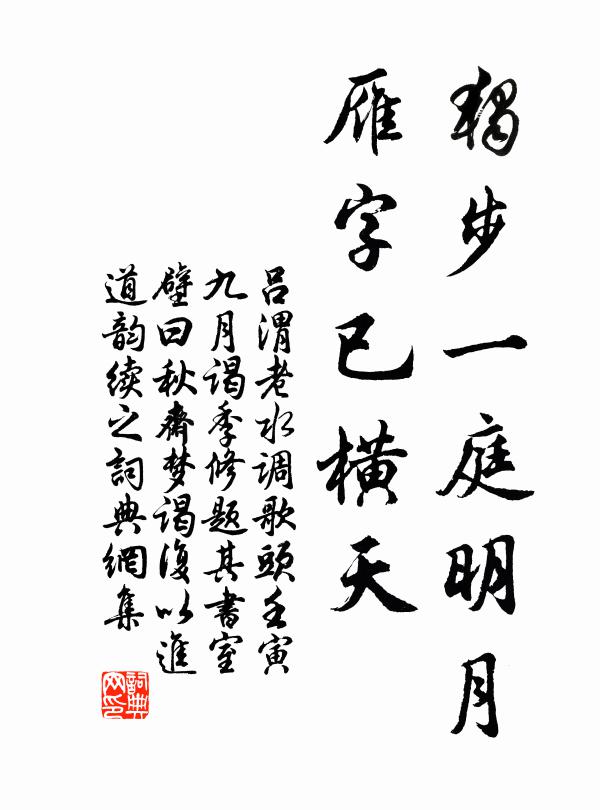 獨步一庭明月
雁字已橫天
吕渭老水调歌頭壬寅
九月谒季修题其書室
壁曰秋齋梦谒復以進
道韵续之詞典網集
詞典网印